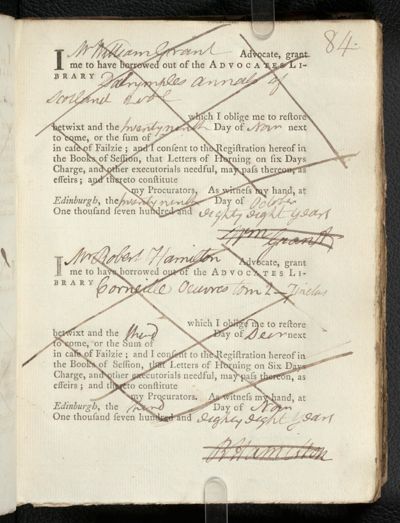 84.
I Mr William Grant Advocate, grant
me to have borrowed out of the ADVOCATES LI-
BRARY Dalrymples annals of
Scotland 2 vol
which I oblige me to reſtore
betwixt and the twenty ninth Day of Novr next
to come, or the ſum of
in caſe of Failzie; and I conſent to the Regiſtration hereof in
the Books of Seſſion, that Letters of Horning on ſix Days
Charge, and other executorials needful, may paſs thereon, as
effeirs; and thereto conſtitute
my Procurators. As witneſs my hand, at
Edinburgh, the twenty ninth Day of October
One thouſand ſeven hundred and eighty eight years
Wm Grant
I Mr Robert Hamilton Advocate, grant
me to have borrowed out of the ADVOCATES LI-
BRARY Corneille Oeuvres tom 2
which I oblige me to reſtore
betwixt and the third Day of Decr next
to come, or the Sum of
in caſe of Failzie; and I conſent to the Regiſtration hereof in
the Books of Seſſion, that Letters of Horning on Six Days
Charge, and other executorials needful, may paſs thereon, as
effeirs; and thereto conſtitute
my Procurators. As witneſs my hand, at
Edinburgh, the third Day of Novr
One thouſand ſeven hundred and eighty eight years
R Hamilton